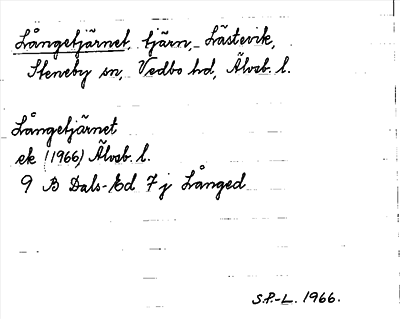 Långetjärnet, tjärn, Lästevik,
Steneby sn, Vedbo hd, Älvsb. l.
Långetjärnet
ek (1966) Älvsb. l.
9 B Dals-Ed 7 j Långed
S.P.-L. 1966.